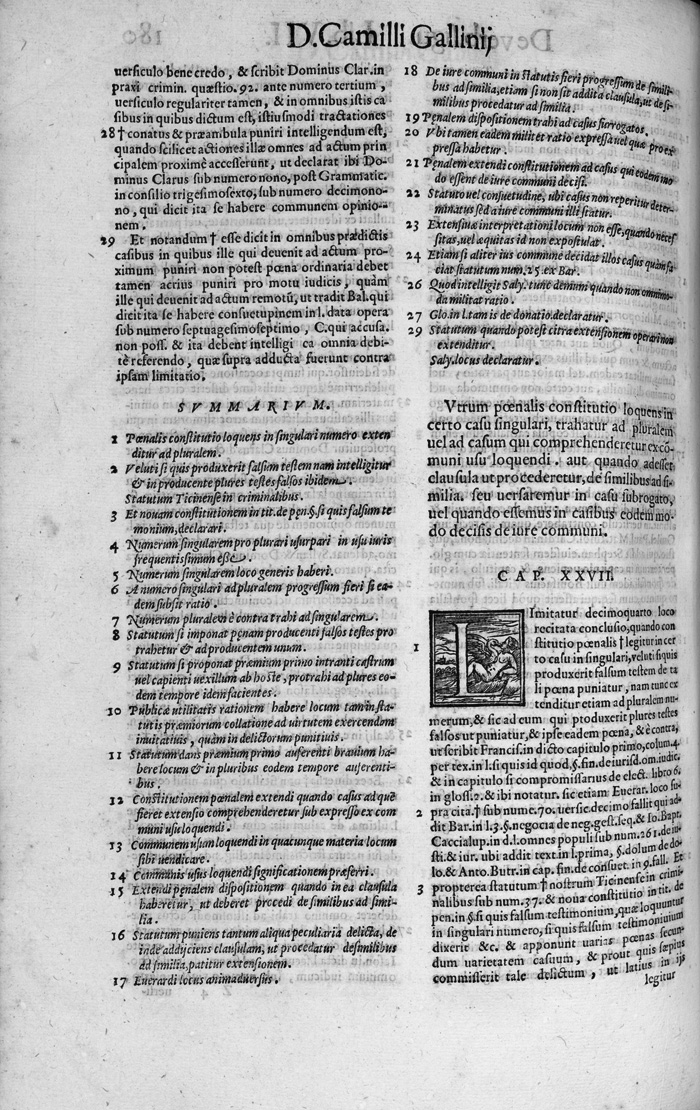 D. Camilli Gallinij
uersiculo bene credo, & scribit Dominus Clar. in
praxi crimin. quæstio. 92. ante numero tertium,
uersiculo regulariter tamen, & in omnibus istis ca
sibus in quibus dictum est, istiusmodi tractationes
28 † conatus & præambula puniri intelligendum est,
quando scilicet actiones illæ omnes ad actum prin
cipalem proximè accesserunt, ut declarat ibi Do-
minus Clarus sub numero nono, post Grammatic.
in consilio trigesimosexto, sub numero decimono-
no, qui dicit ita se habere communem opinio-
nem.
29 Et notandum † esse dicit in omnibus prædictis
casibus in quibus ille qui deuenit ad actum pro-
ximum puniri non potest pœna ordinaria debet
tamen acrius puniri pro motu iudicis, quàm
ille qui deuenit ad actum remotũ, ut tradit Bal. qui
dicit ita se habere consuetupinem in l. data opera
sub numero septuagesimoseptimo, C. qui accusa.
non poss. & ita debent intelligi ea omnia debi-
tè referendo, quæ supra adducta fuerunt contra
ipsam limitatio.
SVMMARIVM.
1 Pœnalis constitutio loquens in singulari numero exten
ditur ad pluralem.
2 Veluti si quis produxerit falsum testem nam intelligitur
& in producente plures testes falsos ibidem.
Statutum Ticinense in criminalibus.
3 Et nouam constitutionem in tit. de pen. §. si quis falsum te
monium, declarari.
4 Numerum singularem pro plurari usurpari in usu iuris
frequentissimum esse.
5 Numerum singularem loco generis haberi.
6 A numero singulari ad pluralem progressum fieri si ea-
dem subsit ratio.
7 Numerum pluralem è contra trahi ad singularem.
8 Statutum si imponat pęnam producenti falsos testes pro
trahetur & ad producentem unum.
9 Statutum si proponat præmium primo intranti castrum
uel capienti uexillum ab hoste, protrahi ad plures eo-
dem tempore idem facientes.
10 Publicæ utilitatis rationem habere locum tam in sta-
tutis præmiorum collatione ad uirtutem exercendam
inuitatiuis, quàm in delictorum punitiuis.
11 Statutum dans præmium primo auferenti brauium ha-
bere locum & in pluribus eodem tempore auferenti-
bus.
12 Constitutionem pœnalem extendi quando casus ad quẽ
fieret extensio comprehenderetur sub expresso ex com
muni usu loquendi.
13 Communem usum loquendi in quacunque materia locum
sibi uendicare.
14 Communis usus loquendi significationem præferri.
15 Extendi penalem dispositionem quando in ea clausula
haberetur, ut deberet procedi de similibus ad simi-
lia.
16 Statutum puniens tantum aliqua peculiaria delicta, de
inde addijciens clausulam, ut procedatur de similibus
ad similia, patitur extensionem.
17 Euerardi locus animaduersus.
18 De iure communi in statutis fieri progressum de simili-
bus ad similia, etiam si non sit addita clausula, ut de si-
milibus procedatur ad similia.
19 Penalem dispositionem trahi ad casus surrogatos.
20 Vbi tamen eadem militet ratio expressa uel quæ pro ex
pressa habetur.
21 Penalem extendi constitutionem ad casus qui eodem mo
do essent de iure communi decisi.
22 Statuto uel consuetudine, ubi casus non reperitur deter-
minatus sed a iure communi illi statur.
23 Extensiuæ interpretationi locum non esse, quando neces
sitas, uel æquitas id non expostulat.
24 Etiam si aliter ius commune decidat illos casus quàm fa
ciat statutum num. 25. ex Bar.
26 Quod intelligit Saly. tunc demum quando non omnimo-
da militat ratio.
27 Glo. in l. tam is de donatio. declaratur.
29 Statutum quando potest citra extensionem operari non
extenditur.
Saly. locus declaratur.
Vtrum pœnalis constitutio loquens in
certo casu singulari, trahatur ad pluralem
uel ad casum qui comprehenderetur ex cõ-
muni usu loquendi. aut quando adesset
clausula ut procederetur, de similibus ad si-
milia, seu uersaremur in casu subrogato,
uel quando essemus in casibus eodem mo-
do decisis de iure communi.
CAP. XXVII.
I Imitatur decimoquarto loco
recitata conclusio, quando con
1 stitutio pœnalis † legitur in cer
to casu in singulari, veluti si quis
produxerit falsum testem de ta
li pœna puniatur, nam tunc ex
tenditur etiam ad pluralem nu-
merum, & sic ad eum qui produxerit plures testes
falsos ut puniatur, & ipse eadem pœna, & è contra,
ut scribit Francis. in dicto capitulo primo, colum. 4.
per tex. in l. si quis id quod, §. fin. de iurisd. om. iudic.
& in capitulo si compromissarius de elect. libro 6.
in gloss. 2. & ibi notatur. sic etiam Euerar. loco su-
2 pra cita. † sub nume. 70. uersic. decimo fallit qui ad-
dit Bar. in l. 3. §. negocia de neg. gest. seq. & Io. Bapt.
Caccialup. in d. l. omnes populi sub num. 261. de iu-
sti. & iur. ubi addit text. in l. prima, §. dolum de do-
lo. & Anto. Butr. in cap. fin. de consuet. in 9. fall. Et
3 propterea statutum † nostrum Ticinense in crimi-
nalibus sub num. 37. & noua constitutio in tit. de
pen. in §. si quis falsum testimonium, quæ loquuntur
in singulari numero, si quis falsum testimonium
dixerit &c. & apponunt uarias pœnas secun-
dum uarietatem casuum, & prout quis sæpius
commisserit tale delictum, ut latius in ijs
legitur